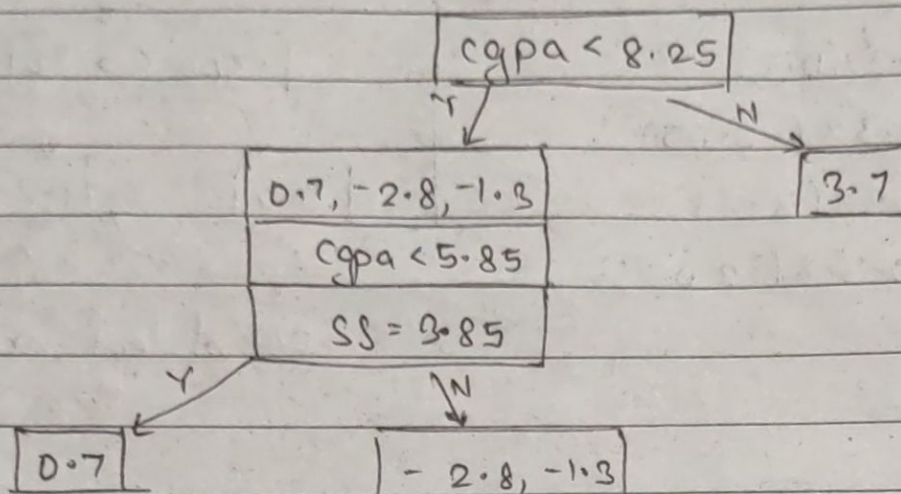 cgpa < 8.25
Y N
0.7, -2.8, -1.3
3.7
cgpa < 5.85
SS = 3.85
Y N
0.7
- 2.8, -1.3